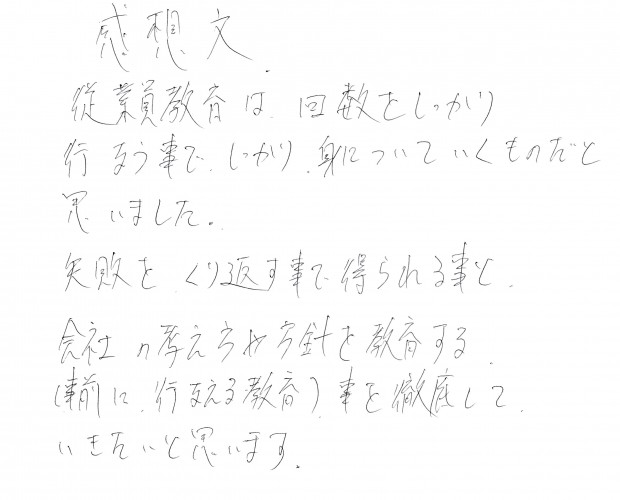 感想文.
従業員教育は、回数をしっかり
行なう事で、しっかり、身についていくものだと
思いました。
失敗を、くり返す事で得られる事と、
会社の考え方や方針を教育する
(事前に、行なえる教育)事を徹底して、
いきたいと思います。